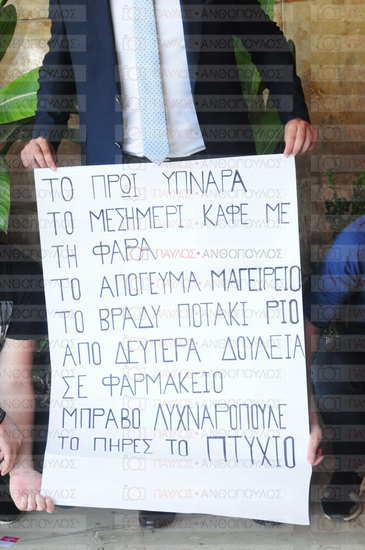 ΤΟ ΠΡΩΙ ΥΠΝΑΡΑ
ΤΟ ΜΕΣΗΜΕΡΙ ΚΑΦΕ ΜΕ
ΤΗ ΦΑΡΑ
ΤΟ ΑΠΟΓΕΥΜΑ ΜΑΓΕΙΡΕΙΟ
ΤΟ ΒΡΑΔΥ ΠΟΤΑΚΙ ΡΙΟ
ΑΠΟ ΔΕΥΤΕΡΑ ΔΟΥΛΕΙΑ
ΣΕ ΦΑΡΜΑΚΕΙΟ
ΜΠΡΑΒΟ ΛΥΧΝΑΡΟΠΟΥΛΕ
ΤΟ ΠΗΡΕΣ ΤΟ ΠΤΥΧΙΟ
ΠΑΥΛΟΣ•ΑΝΘΟΠΟΥΛΟΣ